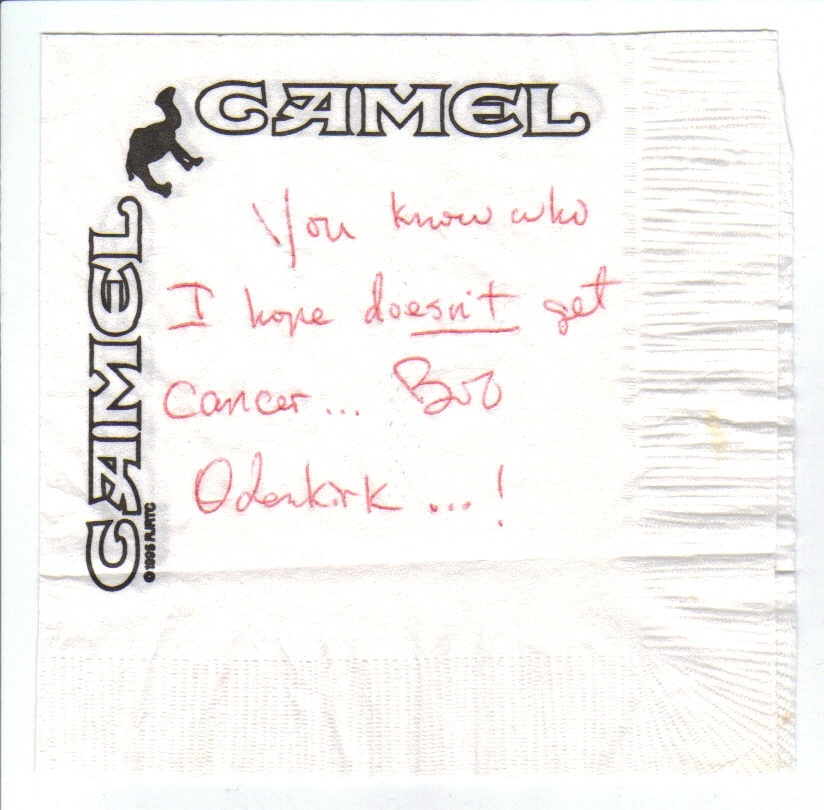 CAMEL
CAMEL
© 1996 RJRTC
You know who
I hope doesn't get
Cancer... Bob
Odenkirk ...!